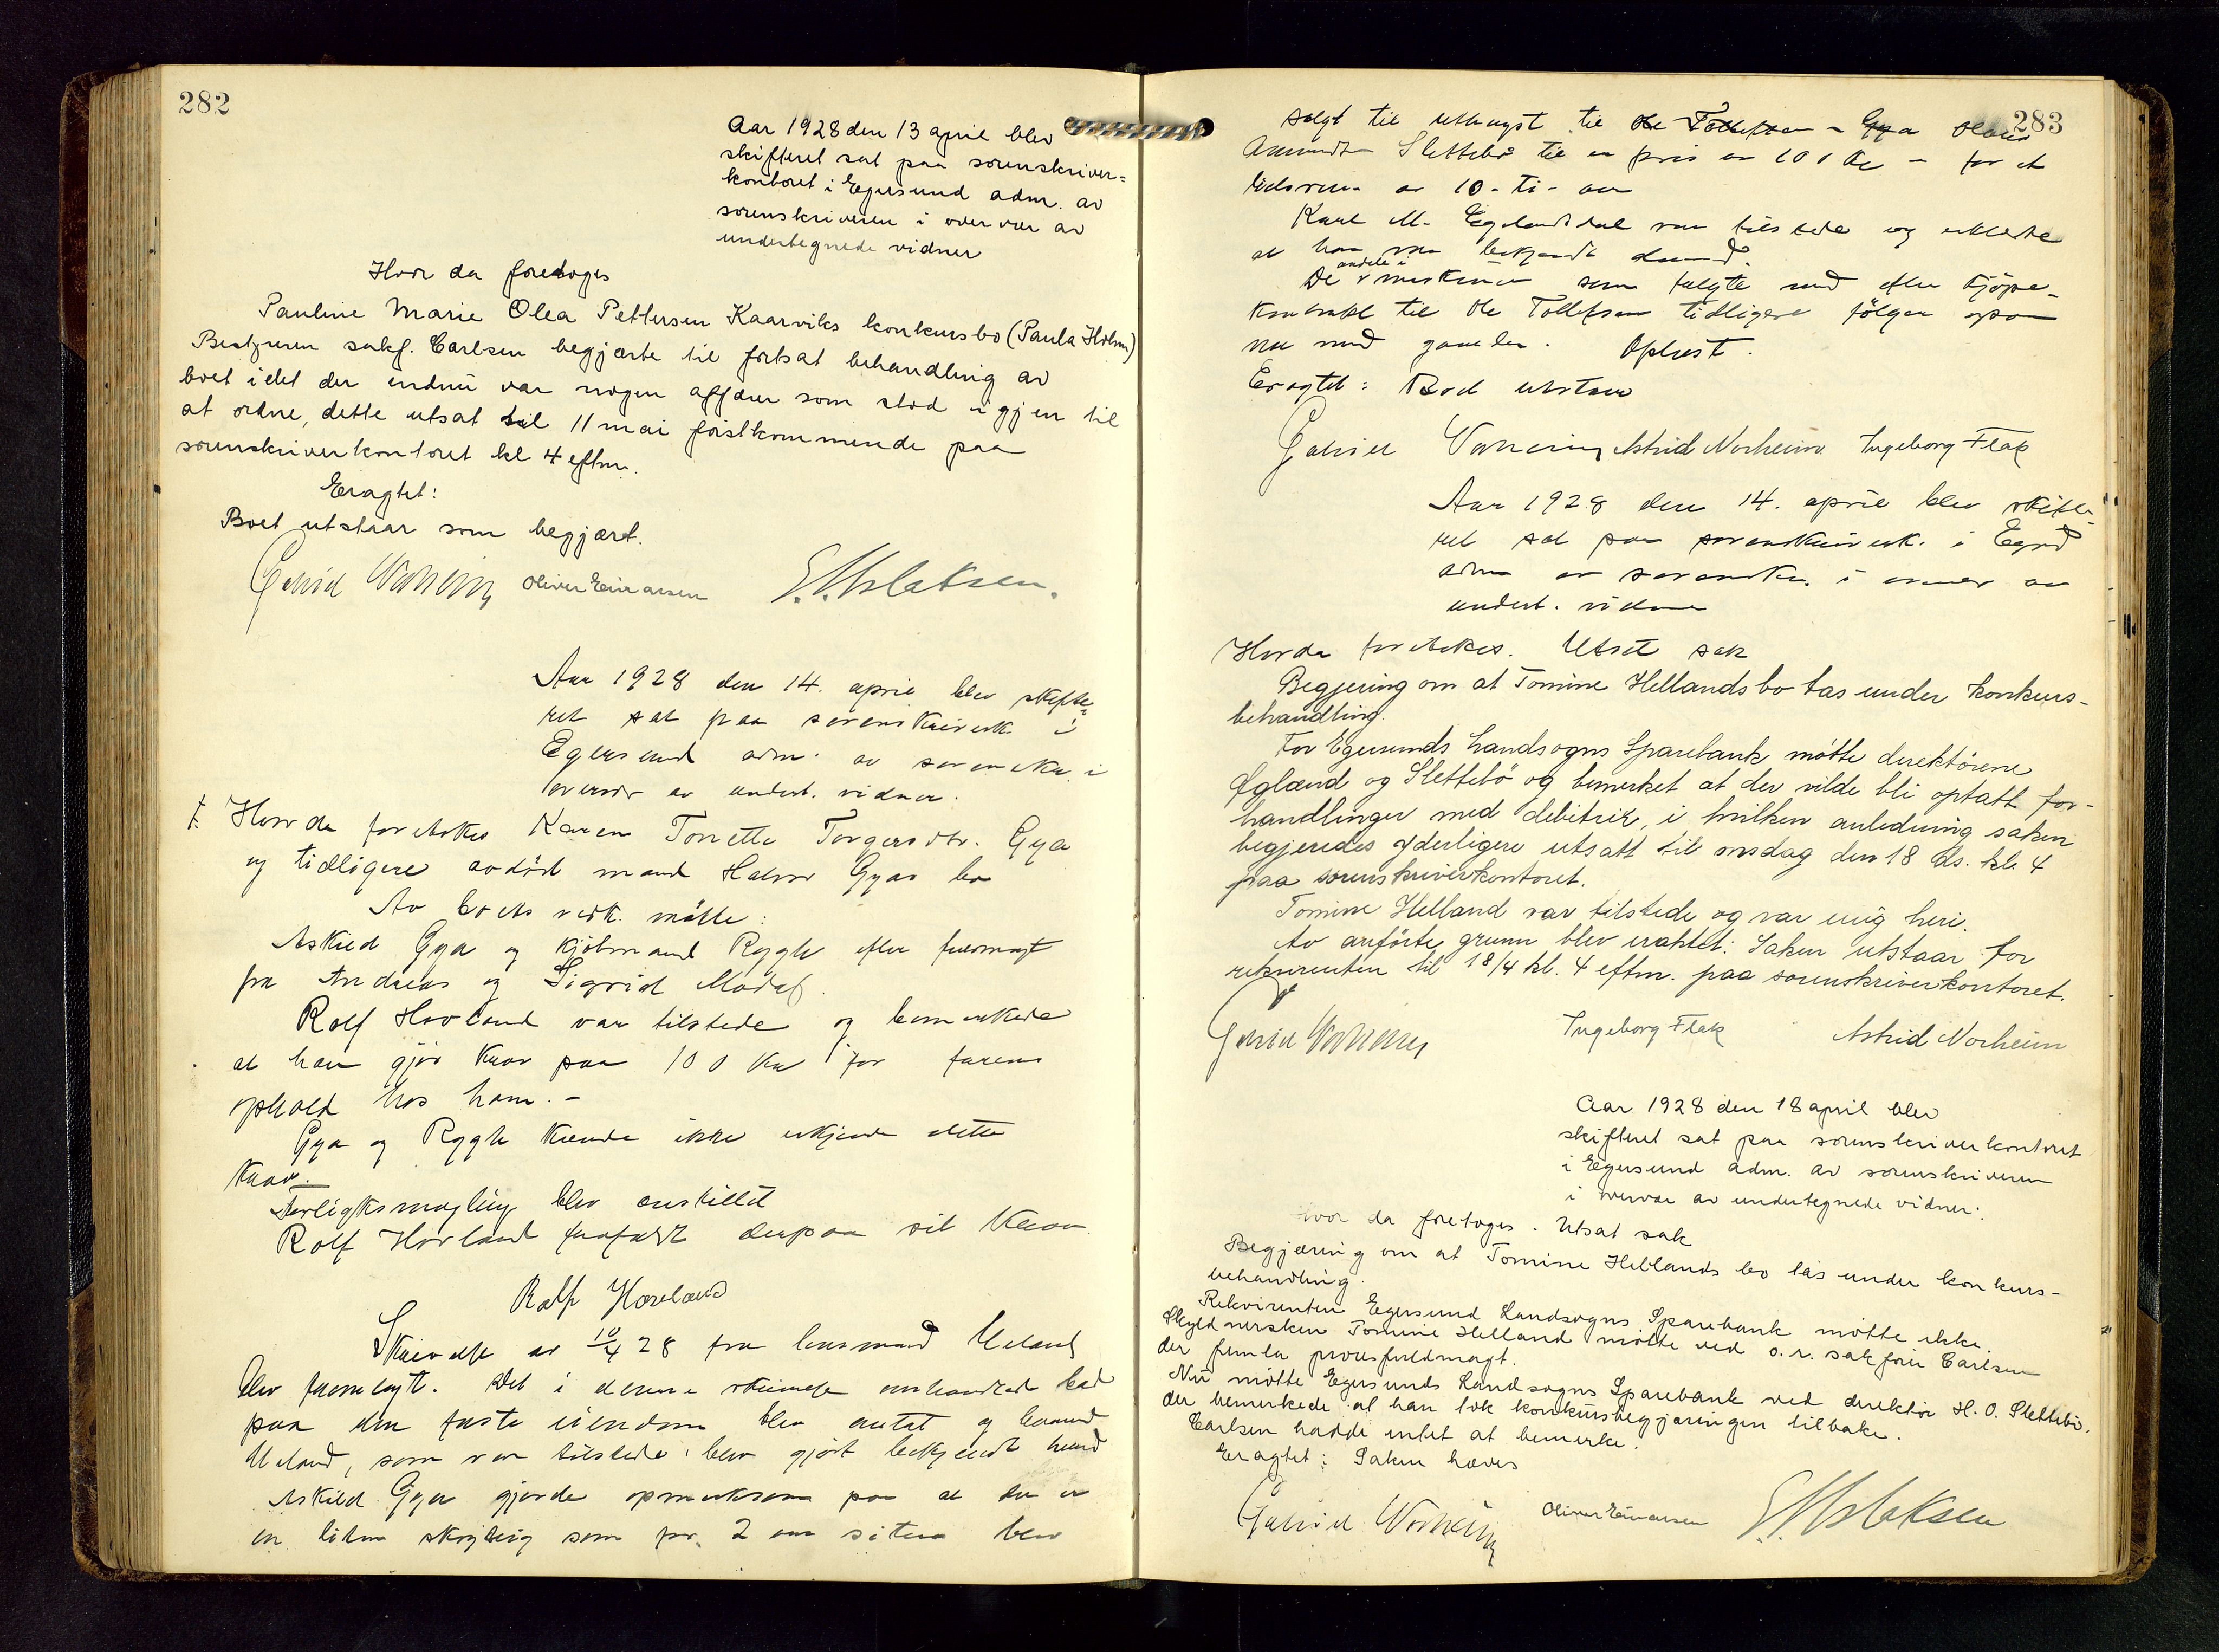 282
Aar 1928 den 13 april blev
skifteret sat paa sorenskriver=
kontoret i Egersund adm. av
sorenskriveren i overvær av
undertegnede vidner
Hvor da foretoges
Pauline Marie Olea Pettersen Kaarviks konkursbo (Paula Holm)
Bestyreren sakf. Carlsen begjærte til fortsat behandling av
boet idet der endnu var nogen affærer som stod igjen til
at ordne, dette utsat til 11 mai førstkommende paa
sorenskriverkontoret kl 4 eftm.
Eragtet:
Boet utstaar som begjært.
Oliver Einarsen
Aar 1928 den 14. april blev skifte=
ret sat paa sorenskriverk. i
Egersund adm. av sorenskr. i
overvær av undert. vidner.
Hvor da foretokes Karen Tonette Torgersdtr. Gya
og tidligere avdöd mand Halvor Gyas bo
Av boets vedk. mötte:
Askild Gya og kjöbmand Rygh efter fuldmagt
fra Andreas og Sigrid
Rolf Hovland var tilstede og bemerkede
at han gjör krav paa 100 kr for farens
ophold hos ham. -
Gya og Rygh kunde ikke erkjende dette
krav.
Forligksmægling blev anstillet
Rolf Hovland frafaldt derpaa sit krav
Rolf Hovland
Skrivelse av 10/4 28 fra lensmand Ueland
blev fremlagt. Det i denne skrivelse omhandlede bud
paa den faste eiendom blev antat og lensmand
Ueland, som var tilstede, blev gjört bekjendt hermed
Askild Gya gjorde opmerksom paa at der er
en liten skogteig som for 2 aar siden blev
283
solgt til uthugst til Ole Tollefsen - Gya
Slettebö til en pris av 100 kr - for et
tidsrum av 10 - ti - aar
Karl M. Egelandsdal var tilstede og erklærte
at han var bekjendt dermed.
andele i
De maskiner som fulgte med efter kjöpe-
kontrakt til Ole Tollefsen tidligere fölger ogsaa
nu med gaarden. Oplæst.
Eragtet: Boet utstaar
Astrid Norheim Ingeborg Flak
Aar 1928 den 14. april blev skifte-
ret sat paa sorenskriverk. i Egersd
adm av sorenskr. i overvær av
undert. vidner
Hvor da foretokes. Utsat sak
Begjering om at Tomine Hellands bo tas under konkurs-
behandling.
For Egersunds landsogns Sparebank mötte direktörene
Øgland og Slettebö og bemerket at der vilde bli optatt for-
handlinger med debitrix, i hvilken anledning saken
begjeredes yderligere utsatt til onsdag den 18 ds. kl. 4
paa sorenskriverkontoret.
Tomine Helland var tilstede og var enig heri.
Av anförte grunn blev eraktet: Saken utstaar for
rekvirenten til 18/4 kl. 4 eftm. paa sorenskriverkontoret.
Ingeborg Flak Astrid Norheim
Aar 1928 den 18 april blev
skifteret sat paa sorenskriverkontoret
i Egersund adm. av sorenskriveren
i overvær av undertegnede vidner:
Hvor da foretoges. Utsat sak
Begjæring om at Tomine Hellands bo tas under konkurs-
behandling.
Rekvirenten Egersund Landsogns Sparebank møtte ikke.
Skyldnersken Tomine Helland møtte ved o.r. sakfører Carlsen
der fremla procesfuldmagt.
Nu møtte Egersunds Landsogns Sparebank ved direktør H. O. Slettebø.
der bemerkede at han tok konkursbegjæringen tilbake.
Carlsen hadde intet at bemerke.
Eragtet: Saken hæves
Oliver Einarsen